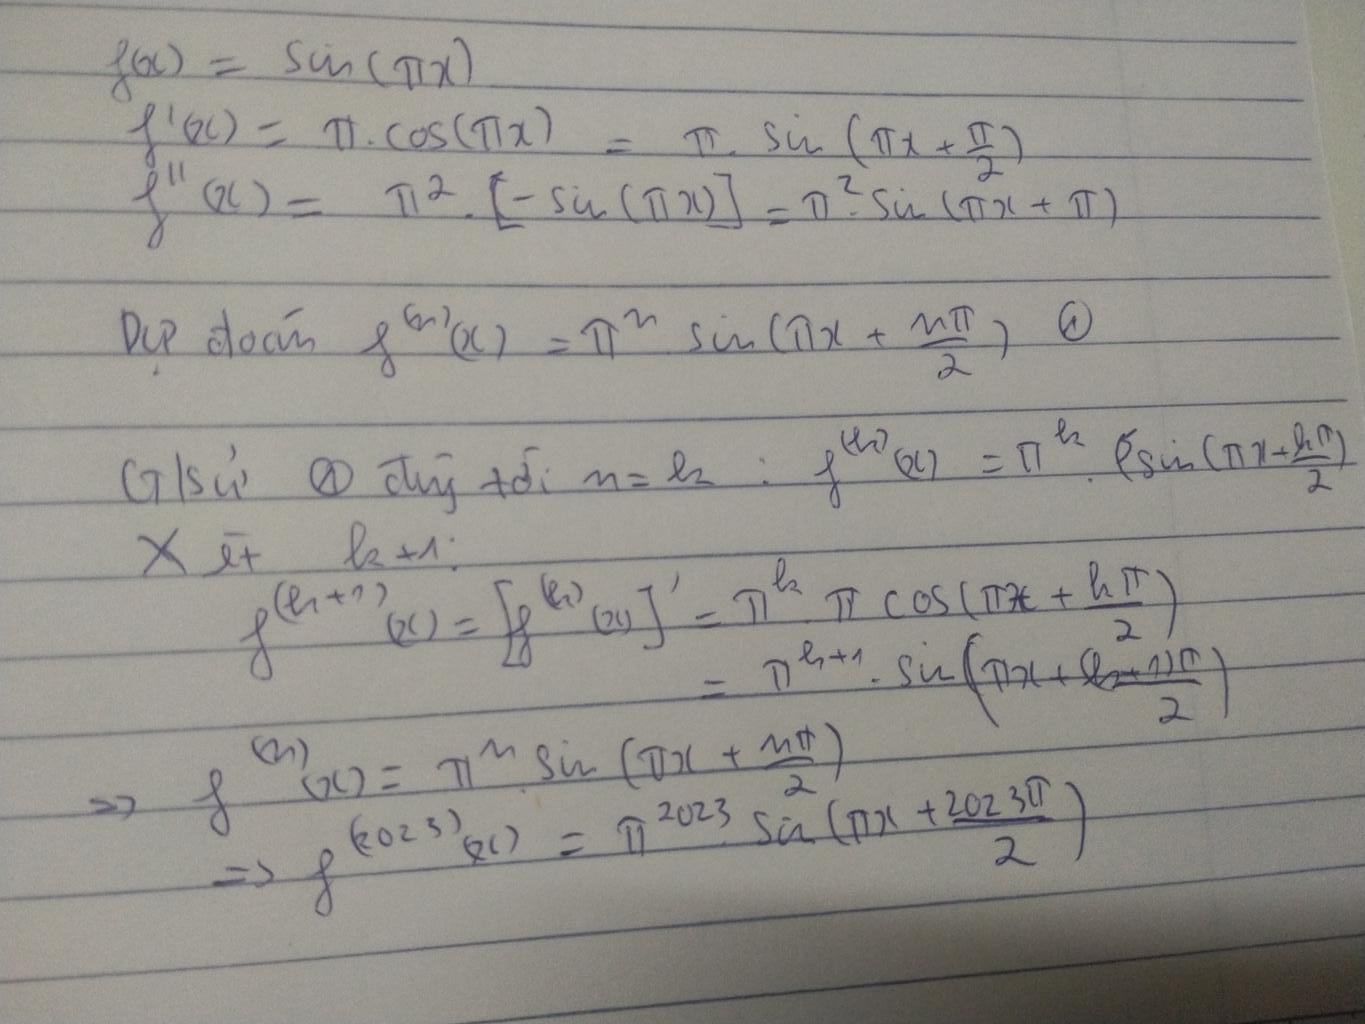 f(x) = sin(πx)
f'(x) = π.cos(πx) = π. sin(πx + π/2)
f''(x) = π². [-sin(πx)] = π². sin(πx + π)
Dự đoán f⁽ⁿ⁾(x) = πⁿ sin(πx + nπ/2) ①
G/sử ① đúng tới n = k : f⁽ᵏ⁾(x) = πᵏ. sin(πx + kπ/2)
Xét k+1:
f⁽ᵏ⁺¹⁾(x) = [f⁽ᵏ⁾(x)]' = πᵏ. π cos(πx + kπ/2)
= πᵏ⁺¹. sin(πx + (k+1)π/2)
=> f⁽ⁿ⁾(x) = πⁿ sin(πx + nπ/2)
=> f⁽²⁰²³⁾(x) = π²⁰²³. sin(πx + 2023π/2)